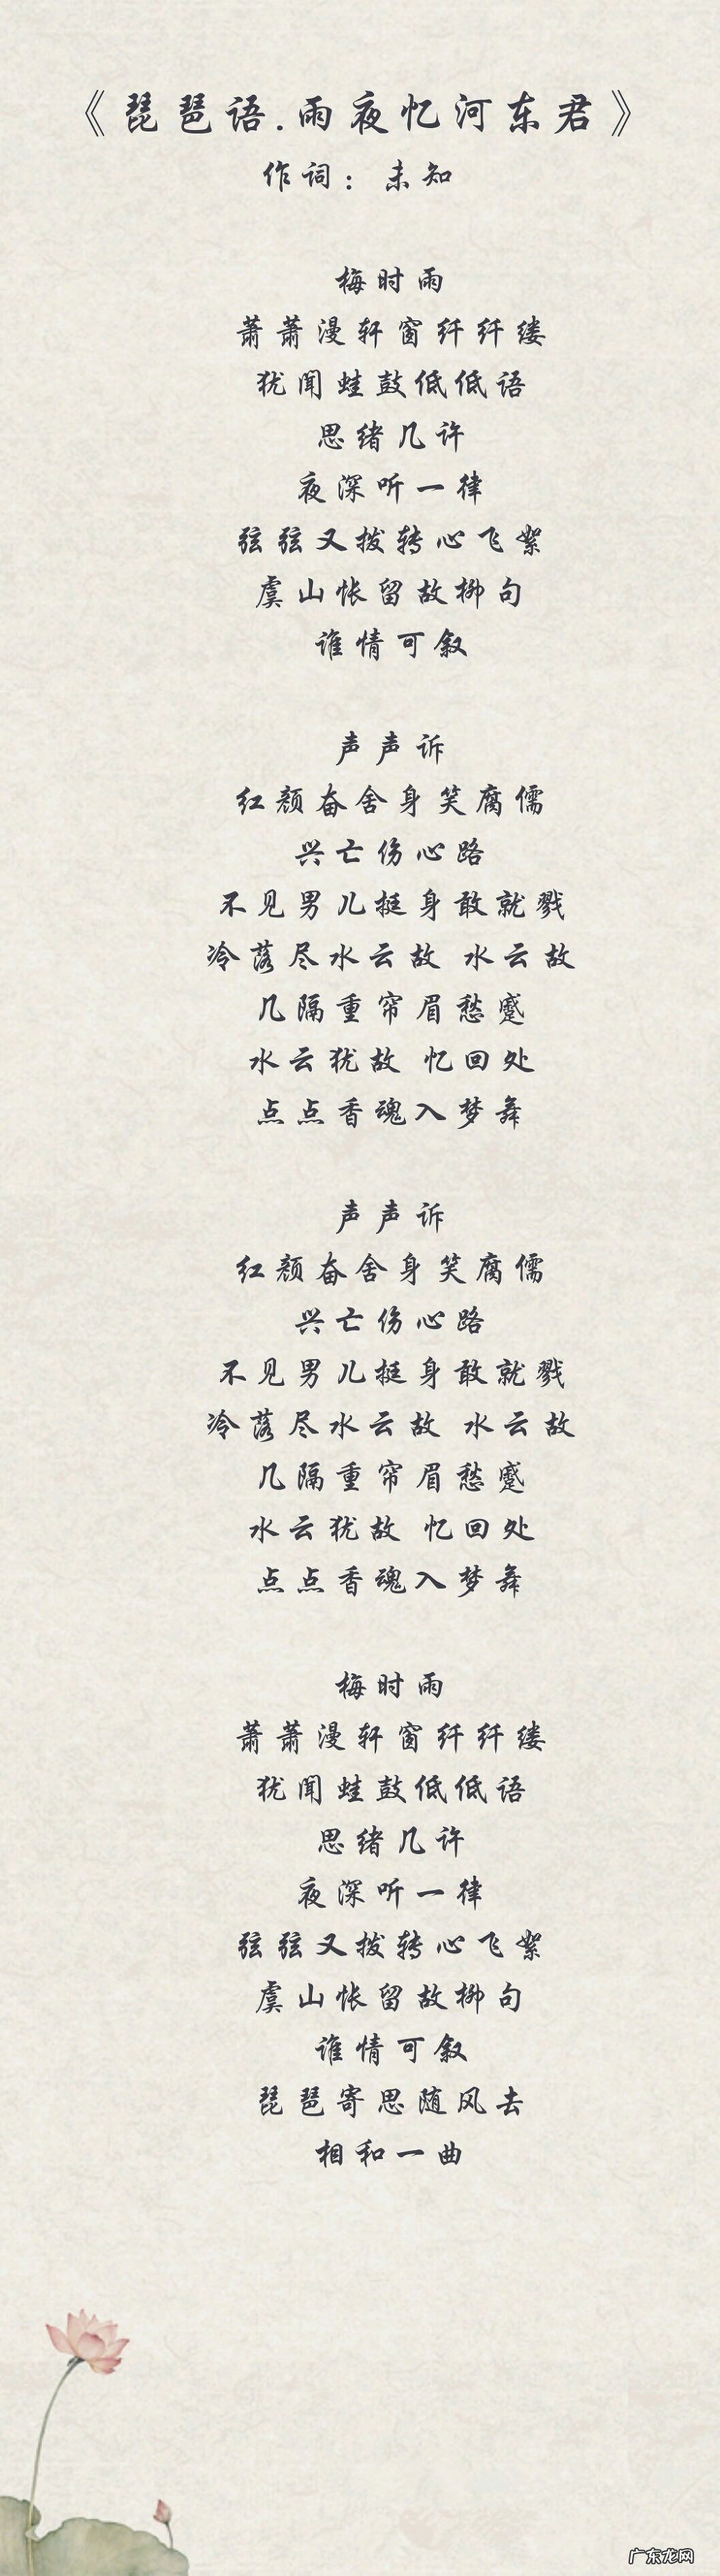 《琵琶语.雨夜忆河东君》
作词：未知
梅时雨
萧萧漫轩窗纤纤缕
犹闻蛙鼓低低语
思绪几许
夜深听一律
弦弦又拨转心飞絮
虞山怅留故柳句
谁情可叙
声声诉
红颜奋舍身笑腐儒
兴亡伤心路
不见男儿挺身敢就戮
冷落尽水云故 水云故
几隔重帘眉愁蹙
水云犹故 忆回处
点点香魂入梦舞
声声诉
红颜奋舍身笑腐儒
兴亡伤心路
不见男儿挺身敢就戮
冷落尽水云故 水云故
几隔重帘眉愁蹙
水云犹故 忆回处
点点香魂入梦舞
梅时雨
萧萧漫轩窗纤纤缕
犹闻蛙鼓低低语
思绪几许
夜深听一律
弦弦又拨转心飞絮
虞山怅留故柳句
谁情可叙
琵琶寄思随风去
相和一曲
广东龙网